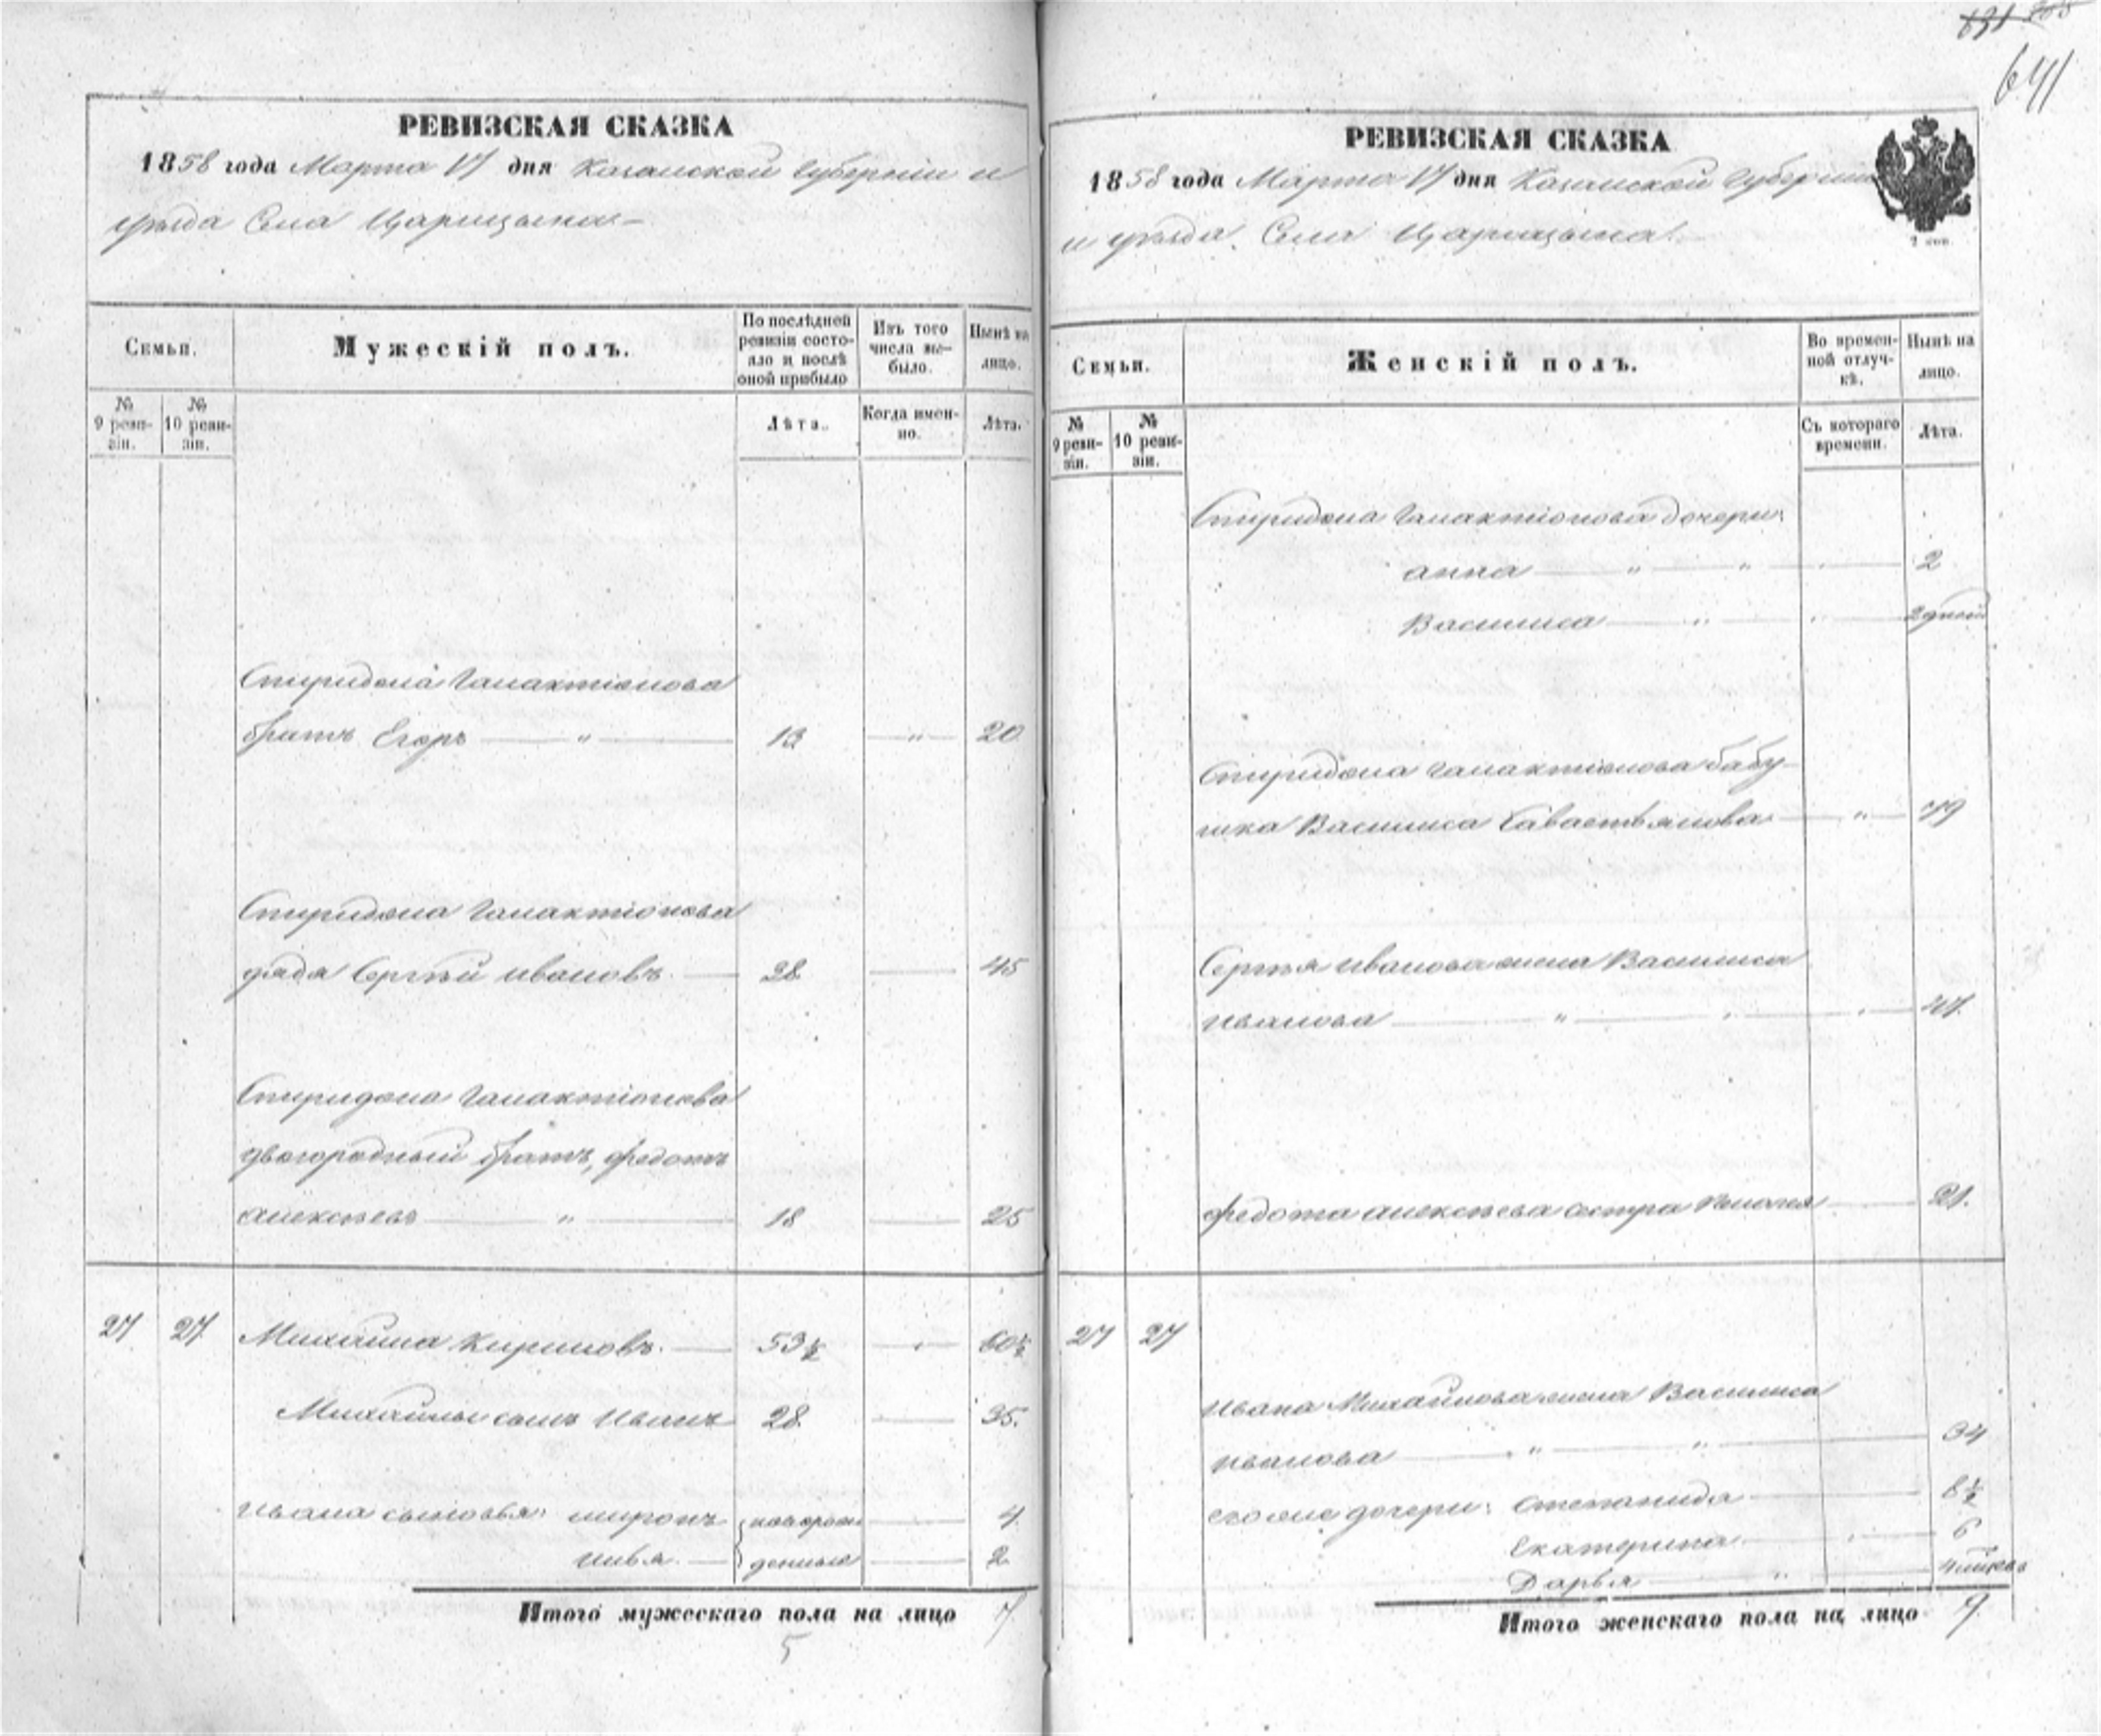 641
РЕВИЗСКАЯ СКАЗКА
1858 года Марта 17 дня Казанской Губернiи и
уѣзда Села Царицына
Семьи.
Мужескiй полъ.
По послѣдней ревизiи состояло и послѣ оной прибыло
Изъ того числа выбыло.
Нынѣ на лицо.
№ 9 ревизiи.
№ 10 ревизiи.
Лѣта.
Когда именно.
Лѣта.
Спиридона Галактiонова
братъ Егоръ — " — 13 — " — 20
Спиридона Галактiонова
дядя Сергѣй Ивановъ — 28 — 45
Спиридона Галактiонова
двоюродный братъ, Федотъ
Алексѣевъ — " — 18 — 25
27 27 Михайла Кириловъ. — 53½ — " — 60½
Михайлы сынъ Иванъ 28 — 35.
Ивана сыновья: Миронъ новорож 4
Илья — денные — 2
Итого мужескаго пола на лицо 7.
5
РЕВИЗСКАЯ СКАЗКА
1858 года Марта 17 дня Казанской Губернiи
и уѣзда Села Царицына
2 коп.
Семьи.
Женскiй полъ.
Во временной отлучкѣ.
Нынѣ на лицо.
№ 9 ревизiи.
№ 10 ревизiи.
Съ котораго времени.
Лѣта.
Спиридона Галактiонова дочери:
Анна — " — " — 2
Василиса — " — 2 дней
Спиридона Галактiонова бабу-
шка Василиса Савастьянова — " — 79
Сергѣя Иванова жена Василиса
Иванова — " — 47.
Федота Алексѣева сестра Пелагея — 21.
27 27
Ивана Михайлова жена Василиса
Иванова — " — " — 34
его же дочери: Степанида — 8½
Екатерина — 6
Дарья — " —
Итого женскаго пола на лицо 9.